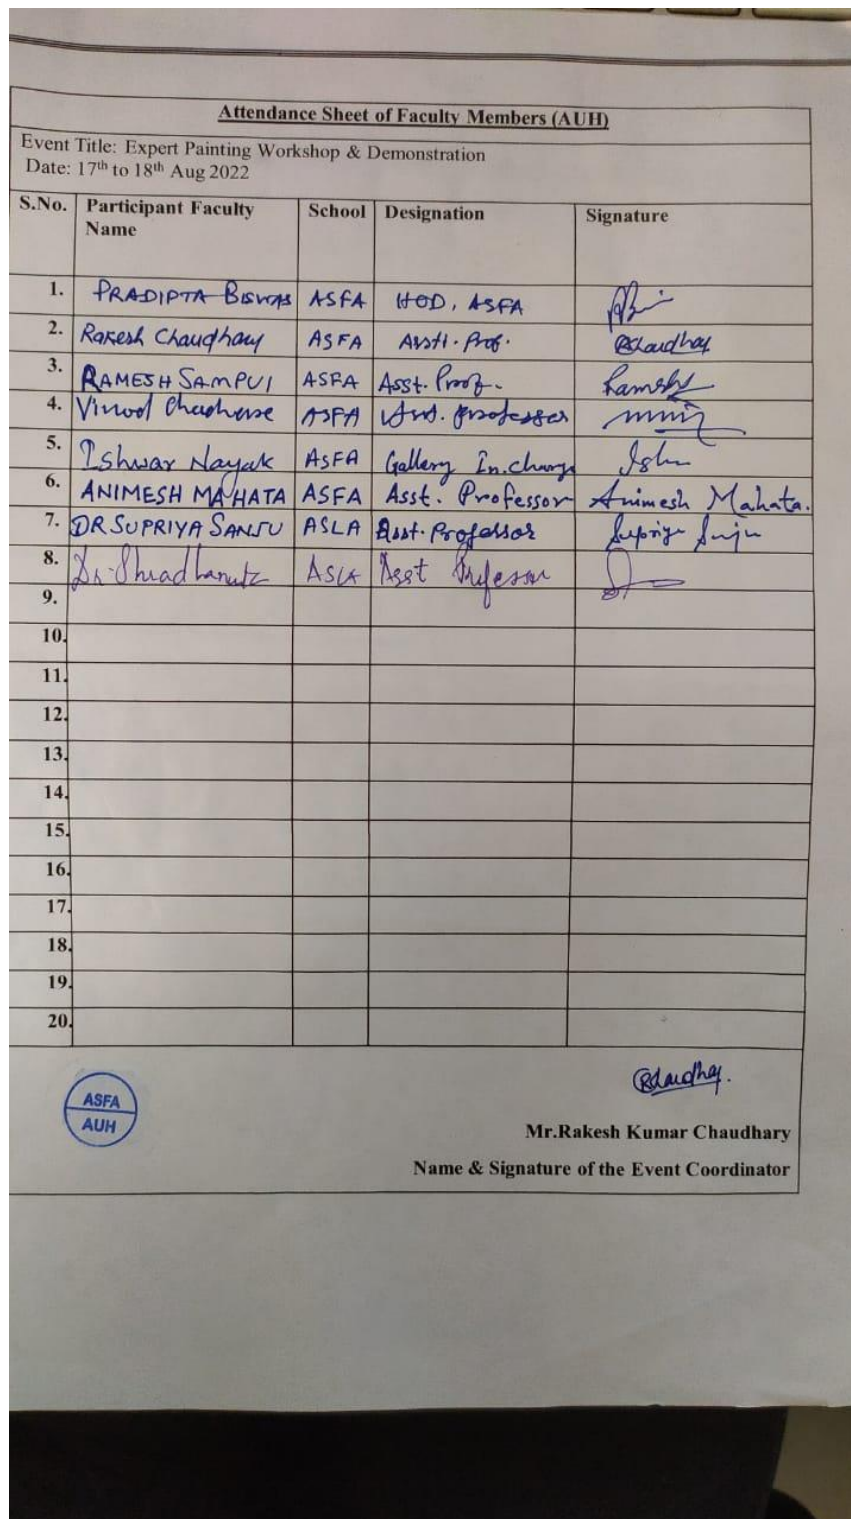 Attendance Sheet of Faculty Members (AUH)
Event Title: Expert Painting Workshop & Demonstration
Date: 17th to 18th Aug 2022
S.No. Participant Faculty Name School Designation Signature
1. PRADIPTA BISWAS ASFA HOD, ASFA
2. Rakesh Chaudhary ASFA Asstt. Prof. RChaudhary
3. RAMESH SAMPUI ASFA Asst. Prof. Ramesh
4. Vinod ASFA Asst. Professor
5. Ishwar Nayak ASFA Gallery In.charge
6. ANIMESH MAHATA ASFA Asst. Professor Animesh Mahata.
7. DR SUPRIYA SANJU ASLA Asst. Professor Supriya Sanju
8. Dr. ASLA Asst Professor
9.
10.
11.
12.
13.
14.
15.
16.
17.
18.
19.
20.
ASFA
AUH
RChaudhary.
Mr.Rakesh Kumar Chaudhary
Name & Signature of the Event Coordinator